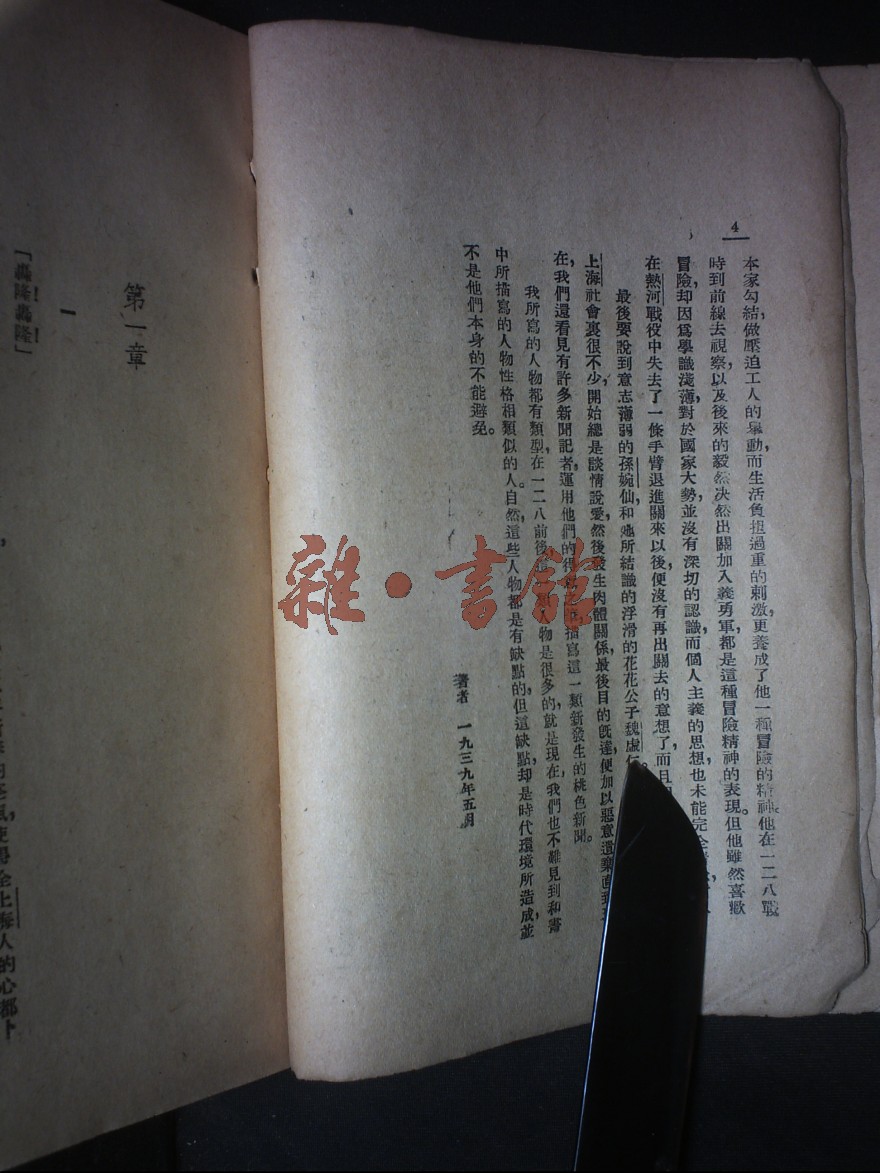 4
本家勾結,做壓迫工人的舉動,而生活負担過重的刺激,更養成了他一種冒險的精神。他在一二八戰
時到前線去視察,以及後來的毅然决然出關加入義勇軍,都是這種冒險精神的表現。但他雖然喜歡
冒險,却因爲學識淺薄,對於國家大勢,並沒有深切的認識,而個人主義的思想,也未能完全
在熱河戰役中失去了一條手臂退進關來以後,便沒有再出關去的意想了,而且
最後要說到意志薄弱的孫婉仙,和她所結識的浮滑的花花公子魏虛
上海社會裏很不少,開始總是談情說愛,然後發生肉體關係,最後目的旣達,便加以惡意遺棄,直到
在,我們還看見有許多新聞記者,運用他們的得描寫這一類新發生的桃色新聞。
我所寫的人物都有類型,在一二八前後人物是很多的,就是現在,我們也不難見到和書
中所描寫的人物性格相類似的人。自然,這些人物都是有缺點的,但這缺點,却是時代環境所造成,並
不是他們本身的不能避免。
著者 一九三九年五月
第一章
一
「轟隆!轟隆!」
上海人的心都卜
雜·書館